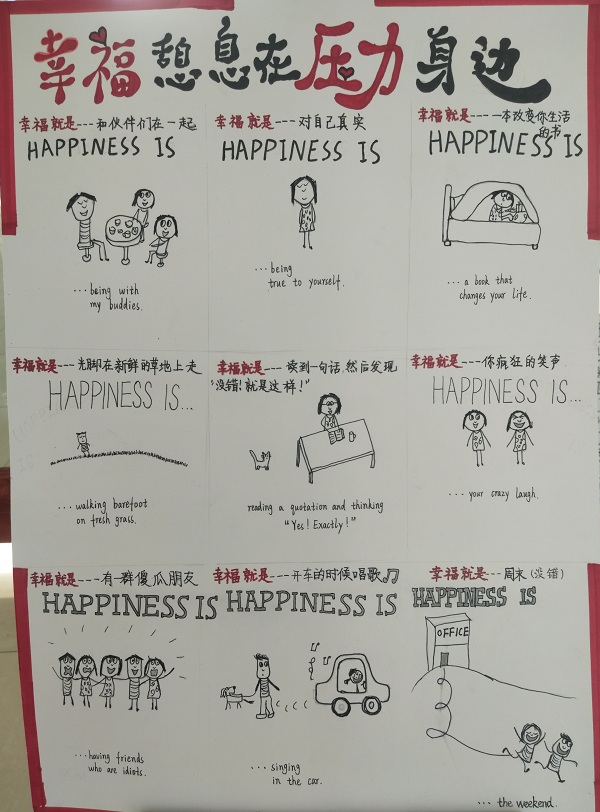 幸福 憩息在压力身边
幸福就是---和伙伴们在一起
HAPPINESS IS
...being with
my buddies.
幸福就是---对自己真实
HAPPINESS IS
...being
true to yourself.
幸福就是---一本改变你生活
的书
HAPPINESS IS
...a book that
changes your life.
幸福就是---光脚在新鲜的草地上走
HAPPINESS IS...
...walking barefoot
on fresh grass.
幸福就是---读到一句话,然后发现
"没错!就是这样!"
HAPPINESS IS...
reading a quotation and thinking
"Yes! Exactly!"
幸福就是---你疯狂的笑声
HAPPINESS IS...
...your crazy laugh.
幸福就是---有一群傻瓜朋友
HAPPINESS IS
...having friends
who are idiots.
幸福就是---开车的时候唱歌
HAPPINESS IS
...singing
in the car.
幸福就是---周末(没错)
HAPPINESS IS
OFFICE
...the weekend.